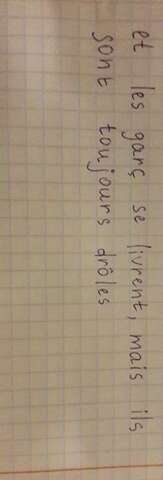 et les garç se livrent, mais ils
sont toujours drôles